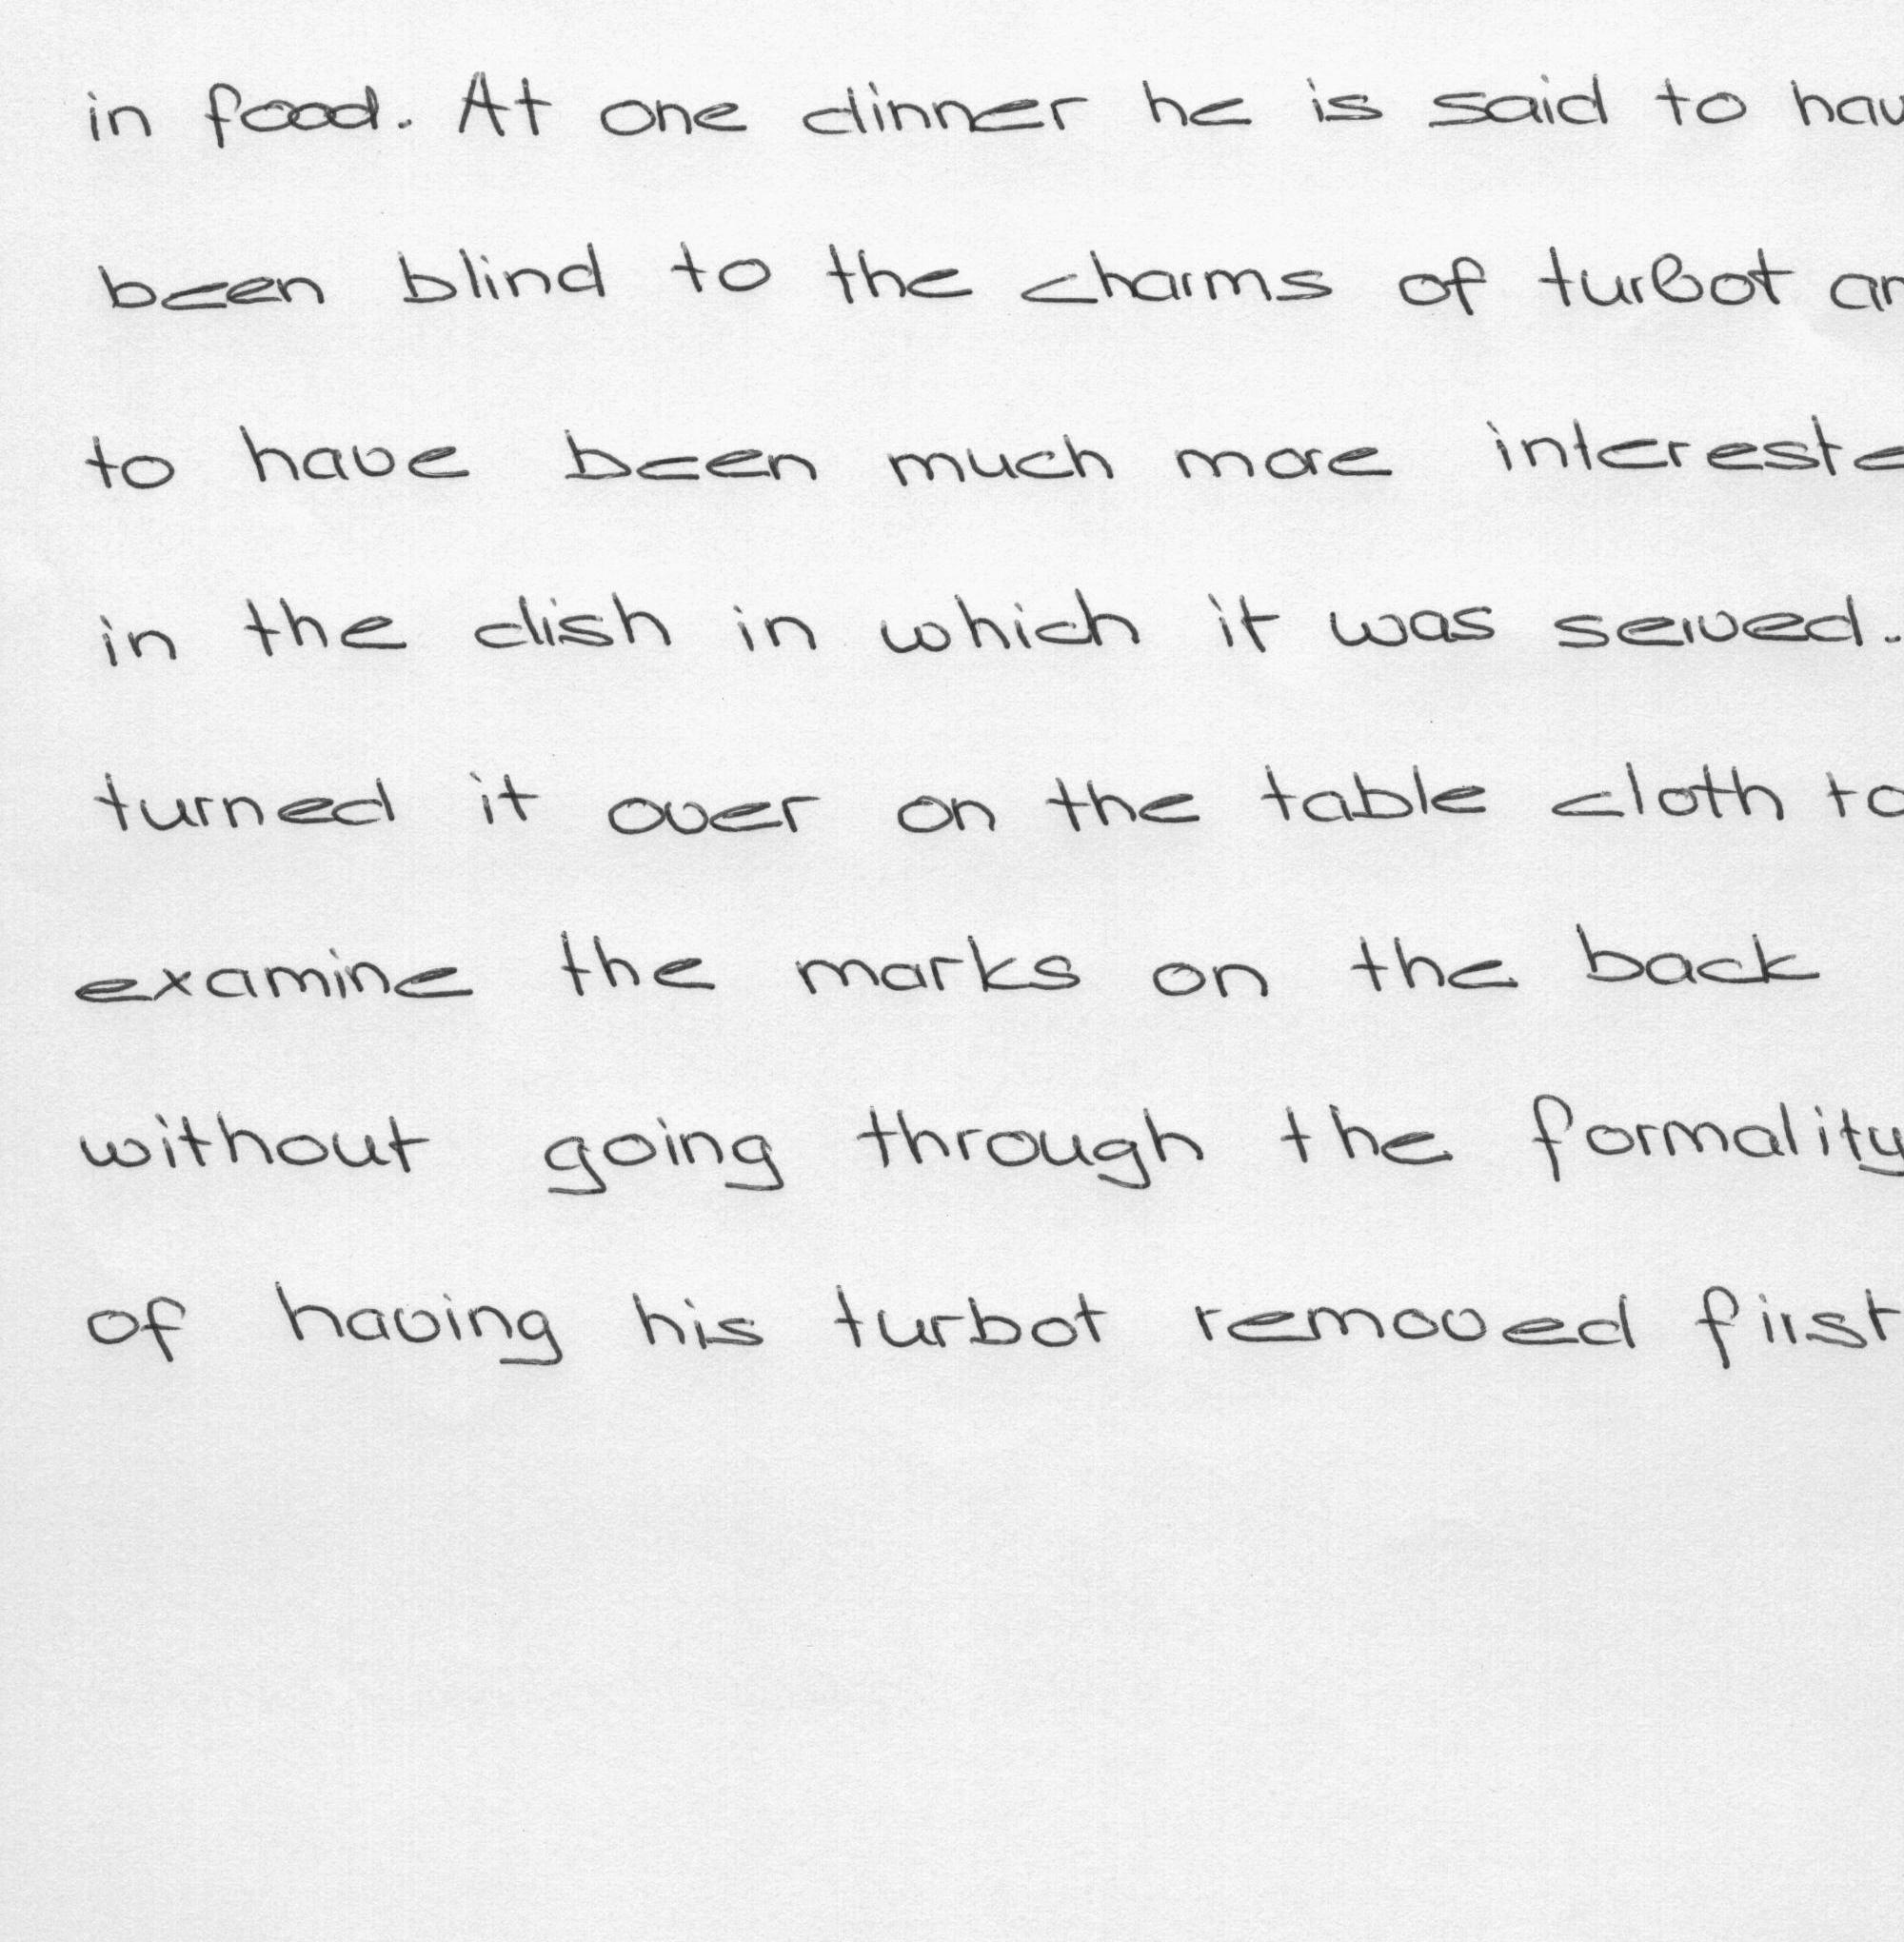 in food. At one dinner he is said to hav
been blind to the charms of turbot an
to have been much more intereste
in the dish in which it was served.
turned it over on the table cloth to
examine the marks on the back
without going through the formality
of having his turbot removed first